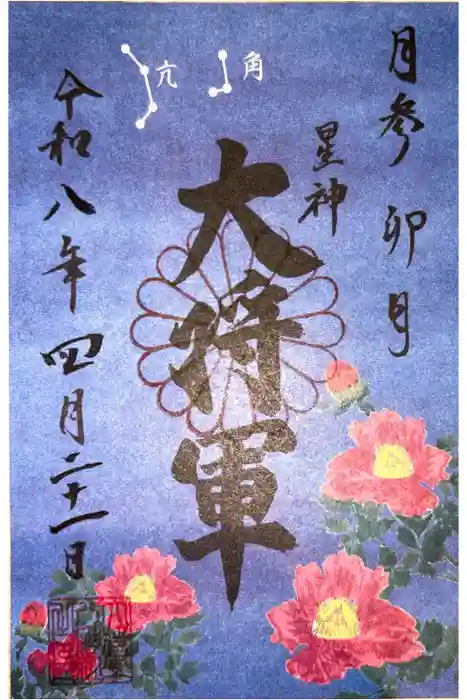 月参 卯月
星神
大将軍
角
亢
令和八年四月二十一日